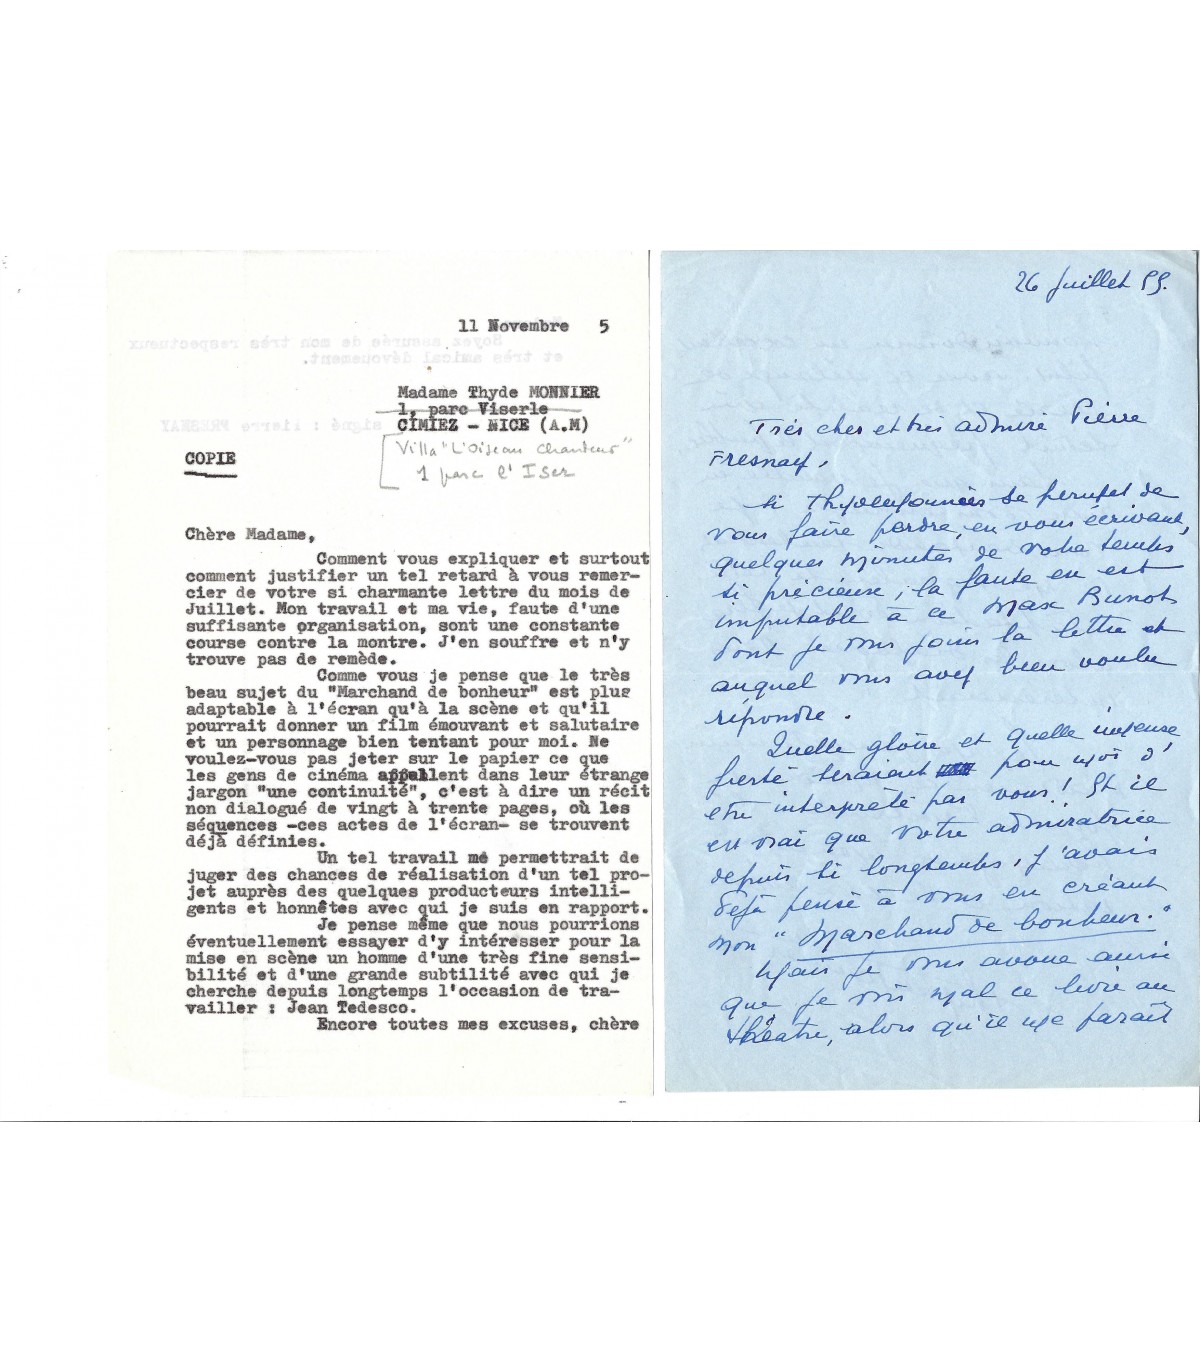 11 Novembre 5
Madame Thyde MONNIER
1, parc Viserle
CIMIEZ - NICE (A.M)
Villa "L'Oiseau Chanteur"
1 parc l'Iser
COPIE
Chère Madame,
Comment vous expliquer et surtout
comment justifier un tel retard à vous remer-
cier de votre si charmante lettre du mois de
Juillet. Mon travail et ma vie, faute d'une
suffisante organisation, sont une constante
course contre la montre. J'en souffre et n'y
trouve pas de remède.
Comme vous je pense que le très
beau sujet du "Marchand de bonheur" est plus
adaptable à l'écran qu'à la scène et qu'il
pourrait donner un film émouvant et salutaire
et un personnage bien tentant pour moi. Ne
voulez-vous pas jeter sur le papier ce que
les gens de cinéma appellent dans leur étrange
jargon "une continuité", c'est à dire un récit
non dialogué de vingt à trente pages, où les
séquences -ces actes de l'écran- se trouvent
déjà définies.
Un tel travail me permettrait de
juger des chances de réalisation d'un tel pro-
jet auprès des quelques producteurs intelli-
gents et honnêtes avec qui je suis en rapport.
Je pense même que nous pourrions
éventuellement essayer d'y intéresser pour la
mise en scène un homme d'une très fine sensi-
bilité et d'une grande subtilité avec qui je
cherche depuis longtemps l'occasion de tra-
vailler : Jean Tedesco.
Encore toutes mes excuses, chère
Soyez assurée de mon très respectueux
et très amical dévouement.
signé : Pierre FRESNAY
26 Juillet 55.
Très cher et très admiré Pierre
Fresnay,
Si Thyde Monnier se permet de
vous faire perdre, en vous écrivant,
quelques minutes de votre temps
si précieux, la faute en est
imputable à ce Max
dont je vous joins la lettre et
auquel vous avez bien voulu
répondre.
Quelle gloire et quelle immense
fierté seraient pour moi d'
être interprêté par vous ! Et il
est vrai que votre admiratrice
depuis si longtemps, j'avais
déjà pensé à vous en créant
mon "Marchand de bonheur."
Mais je vous avoue aussi
que je vois mal ce livre au
théâtre, alors qu'il me paraît